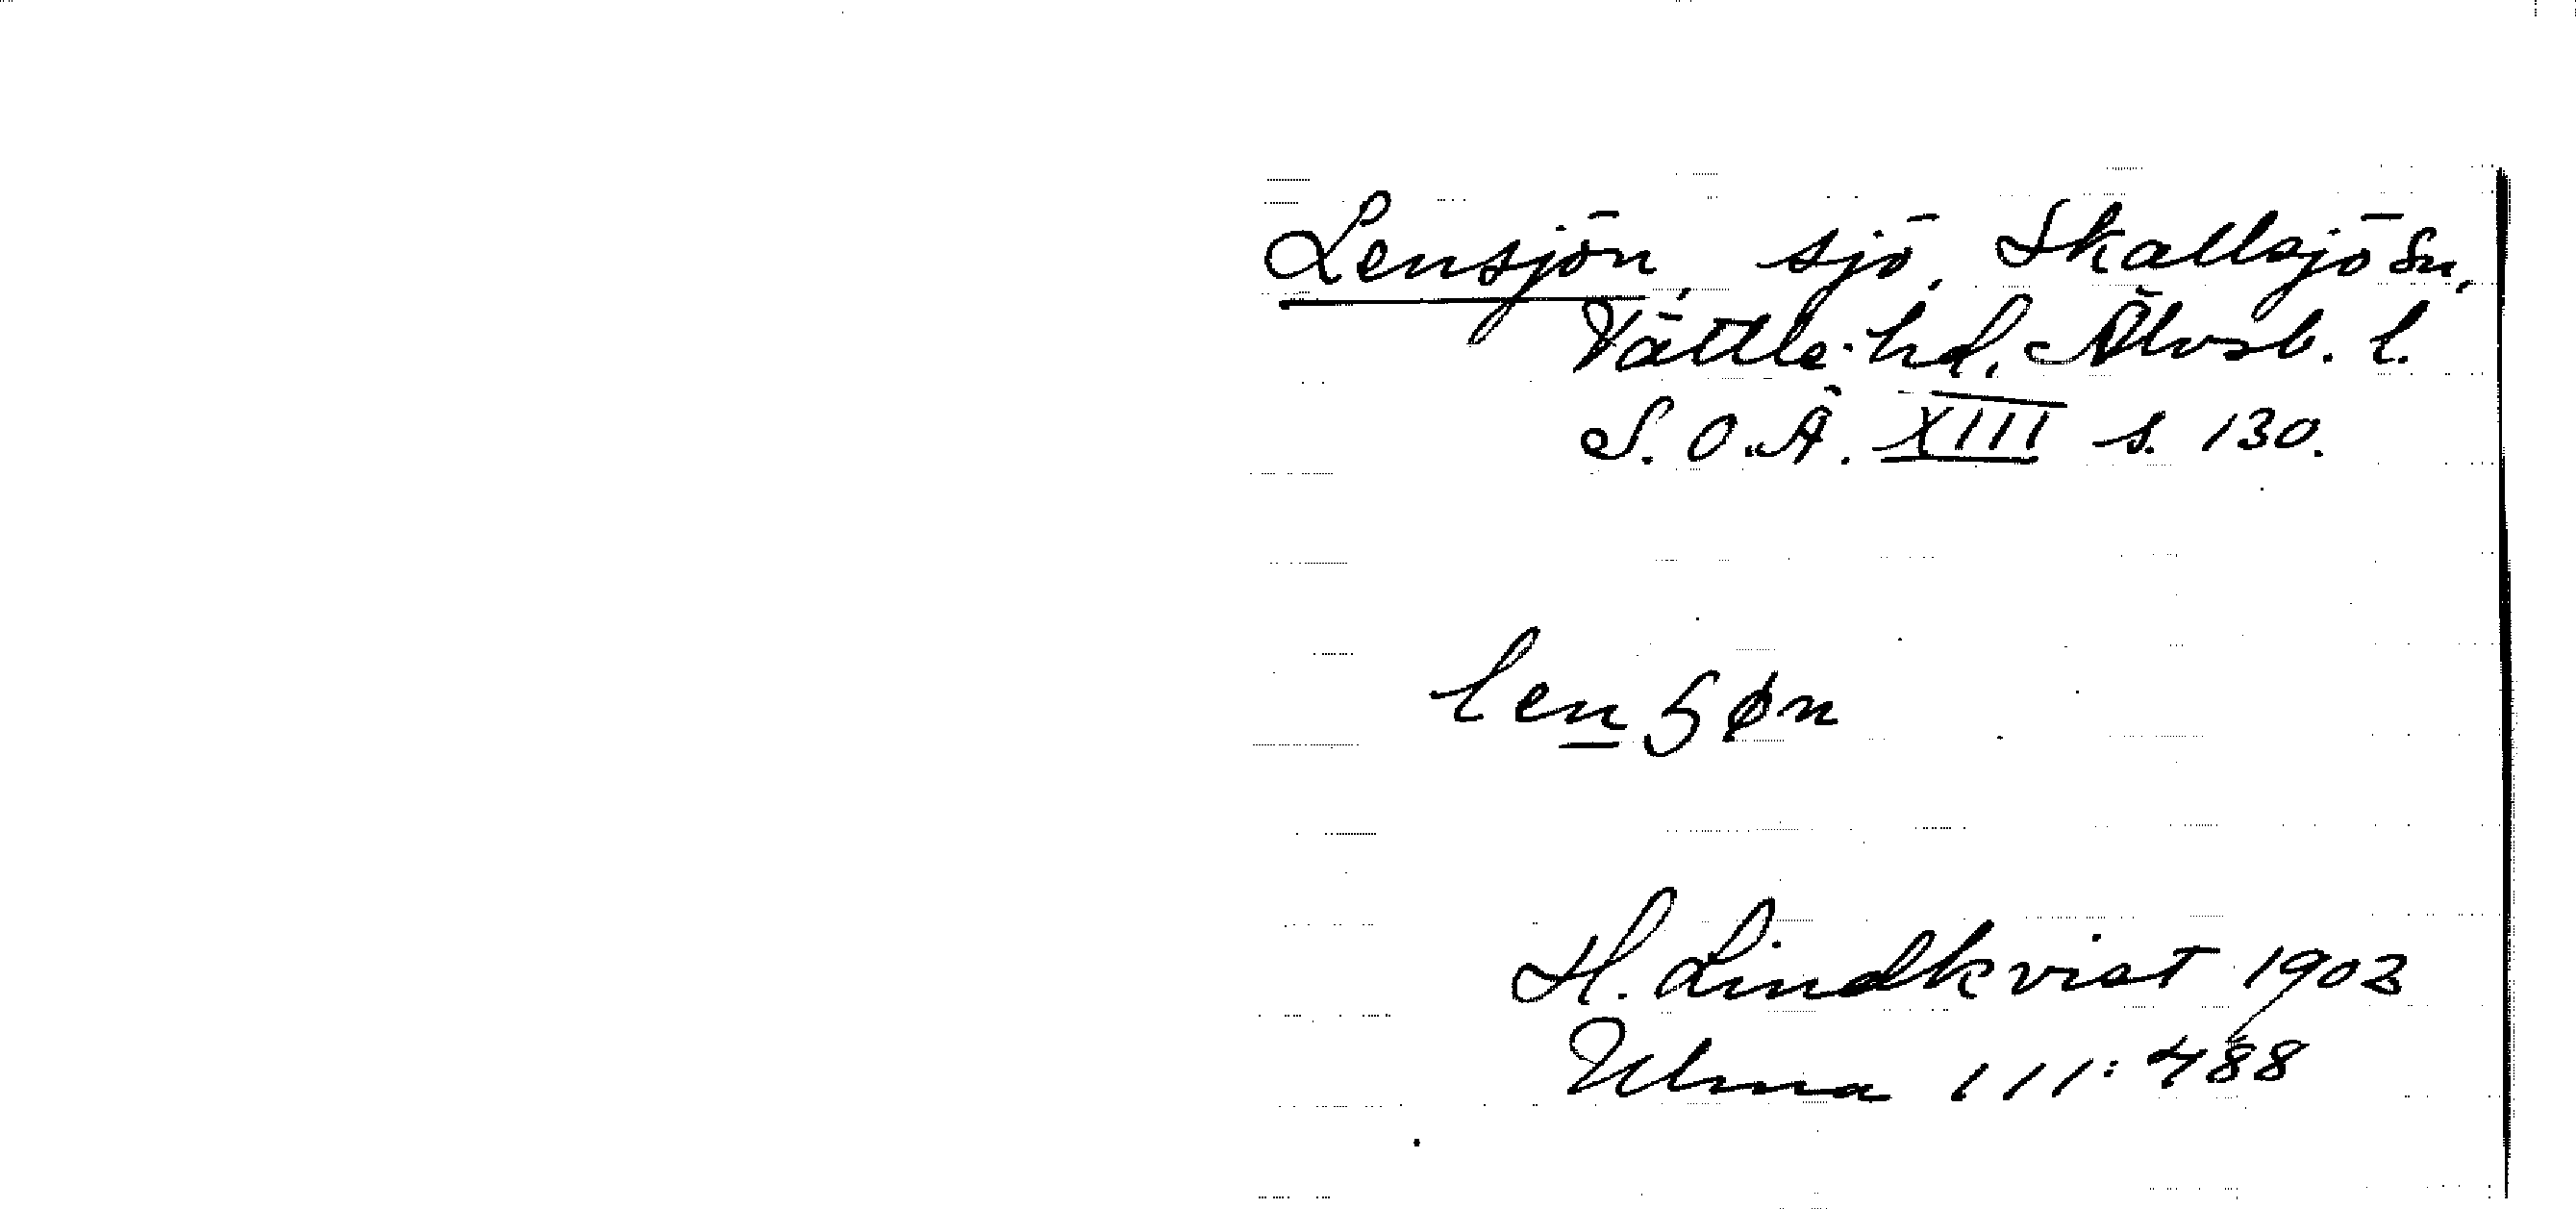 Lensjön, sjö, Skallsjö sn,
Vättle hd. Älvsb. l.
S. O. Ä. XIII s. 130.
H. Lindkvist 1903
Ulma 111:488